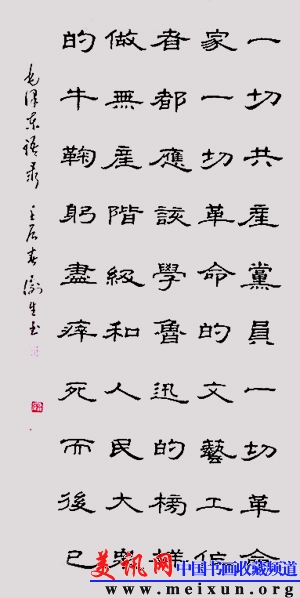 一切共產黨員一切革命
家一切革命的文藝工作
者都應該學魯迅的榜樣
做無產階級和人民大眾
的牛鞠躬盡瘁死而後已
毛澤東語錄 壬辰春
美讯网 中国书画收藏频道
www.meixun.org